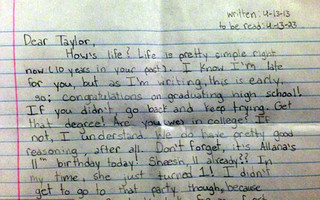 written: 4-13-13
to be read: 4-13-23
Dear Taylor,
How's life? Life is pretty simple right
now (10 years in your past). I know I'm late
for you, but as I'm writing, this is early,
so; congratulations on graduating high school!
If you didn't go back and keep trying. Get
that degree! Are you in college? If
not, I understand. We do have pretty good
reasoning, after all. Don't forget, it's Allana's
11th birthday today! Sheesh, 11 already?? In
my time, she just turned 1! I didn't
get to go to that party though, because